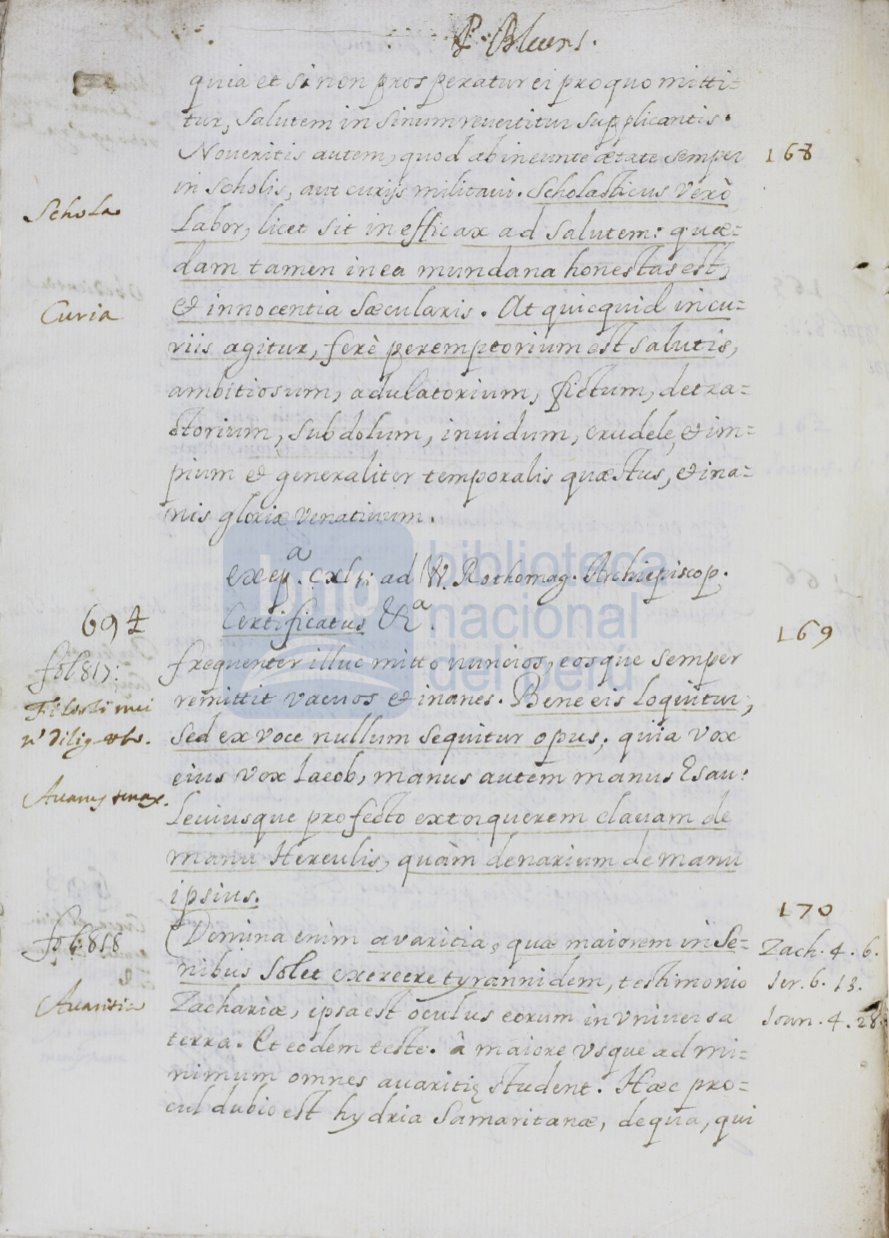 P. Blæens.
quia et si non prosperatur ei pro quo mitti-
tur, salutem in sinum reuertitur supplicantis.
Noueritis autem, quod ab ineunte ætate semper
168
in scholis, aut curijs militaui. Scholasticus verò
Schola
Labor, licet sit inefficax ad salutem: quæ-
dam tamen in ea mundana honestas est,
& innocentia sæcularis. At quicquid in cu-
Curia
riis agitur, ferè peremptorium est salutis,
ambitiosum, adulatorium, fictum, detra-
ctorium, subdolum, inuidum, crudele, & im-
pium et generaliter temporalis quæstus, & ina-
nis gloriæ venatiuum.
ex ep.a cxlj: ad W. Rothomag. Archiepiscop.
694
Certificatus &a.
169
frequenter illuc mitto nuncios, eosque semper
fol 817:
remittit vacuos & inanes. Bene eis loquitur,
sed ex voce nullum sequitur opus, quia vox
eius vox Iacob, manus autem manus Esau:
Leuiusque profecto extorquerem clauam de
manu Herculis, quàm denarium de manu
ipsius.
170
Domina enim avaritia, quæ maiorem in se-
Zach. 4. 6.
fol: 818
nibus solet exercere tyrannidem, testimonio
Ier. 6. 13.
Auaritia
Zachariæ, ipsa est oculus eorum in vniuersa
Ioan. 4. 28.
terra. Et eodem teste. à maiore vsque ad mi-
nimum omnes auaritię student. Hæc pro-
cul dubio est hydria Samaritanæ, de qua, qui
biblioteca
nacional
del perú
bnp